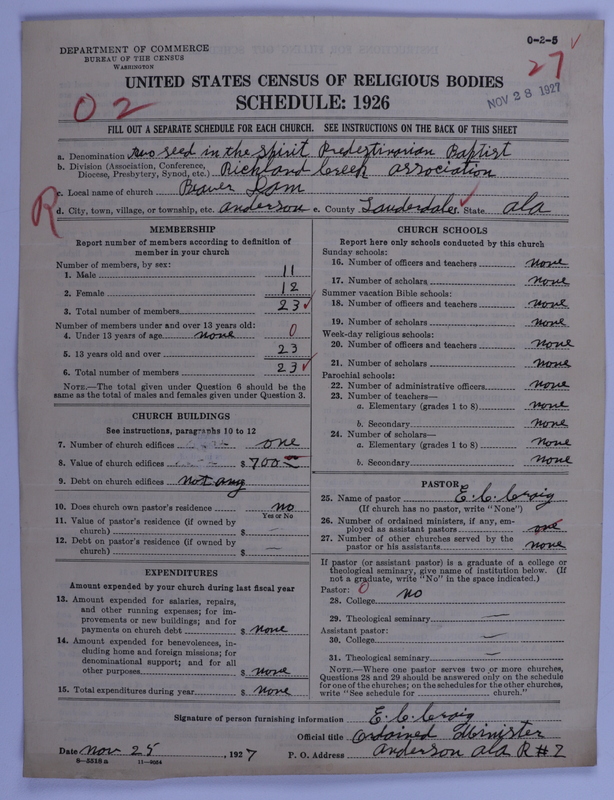 DEPARTMENT OF COMMERCE
BUREAU OF THE CENSUS
WASHINGTON
0-2-5
27
NOV 28 1927
UNITED STATES CENSUS OF RELIGIOUS BODIES
SCHEDULE: 1926
02
FILL OUT A SEPARATE SCHEDULE FOR EACH CHURCH. SEE INSTRUCTIONS ON THE BACK OF THIS SHEET
a. Denomination two seed in the spirit Predestinarian Baptist
b. Division (Association, Conference, Diocese, Presbytery, Synod, etc.) Richland Creek association
c. Local name of church Beaver Dam
R
d. City, town, village, or township, etc. anderson e. County Lauderdale f. State ala
MEMBERSHIP
Report number of members according to definition of
member in your church
Number of members, by sex:
1. Male 11
2. Female 12
3. Total number of members 23
Number of members under and over 13 years old:
4. Under 13 years of age none 0
5. 13 years old and over 23
6. Total number of members 23
NOTE.—The total given under Question 6 should be the
same as the total of males and females given under Question 3.
CHURCH BUILDINGS
See instructions, paragraphs 10 to 12
7. Number of church edifices one
8. Value of church edifices $ 700
9. Debt on church edifices not any
10. Does church own pastor's residence no
Yes or No
11. Value of pastor's residence (if owned by
church) $
12. Debt on pastor's residence (if owned by
church) $ —
EXPENDITURES
Amount expended by your church during last fiscal year
13. Amount expended for salaries, repairs,
and other running expenses; for im-
provements or new buildings; and for
payments on church debt $ none
14. Amount expended for benevolences, in-
cluding home and foreign missions; for
denominational support; and for all
other purposes $ none
15. Total expenditures during year $ none
CHURCH SCHOOLS
Report here only schools conducted by this church
Sunday schools:
16. Number of officers and teachers none
17. Number of scholars none
Summer vacation Bible schools:
18. Number of officers and teachers none
19. Number of scholars none
Week-day religious schools:
20. Number of officers and teachers none
21. Number of scholars none
Parochial schools:
22. Number of administrative officers none
23. Number of teachers—
a. Elementary (grades 1 to 8) none
b. Secondary none
24. Number of scholars—
a. Elementary (grades 1 to 8) none
b. Secondary none
PASTOR
25. Name of pastor E. C. Craig
(If church has no pastor, write "None")
26. Number of ordained ministers, if any, em-
ployed as assistant pastors one
27. Number of other churches served by the
pastor or his assistants none
If pastor (or assistant pastor) is a graduate of a college or
theological seminary, give name of institution below. (If
not a graduate, write "No" in the space indicated.)
Pastor: 0
28. College no
29. Theological seminary —
Assistant pastor:
30. College —
31. Theological seminary —
NOTE.—Where one pastor serves two or more churches,
Questions 28 and 29 should be answered only on the schedule
for one of the churches; on the schedules for the other churches,
write "See schedule for church."
Signature of person furnishing information E. C. Craig
Official title Ordained Minister
Date nov 25, 1927 P. O. Address anderson ala R # 2
8-5518a 11-9054